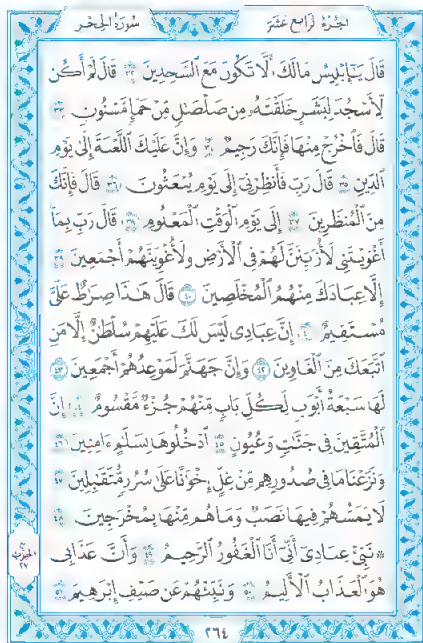 الجزء الرابع عشر سورة الحجر
قَالَ يَٰٓإِبْلِيسُ مَا لَكَ أَلَّا تَكُونَ مَعَ ٱلسَّٰجِدِينَ ٣٢ قَالَ لَمْ أَكُن
لِّأَسْجُدَ لِبَشَرٍ خَلَقْتَهُۥ مِن صَلْصَٰلٍ مِّنْ حَمَإٍ مَّسْنُونٍ ٣٣
قَالَ فَٱخْرُجْ مِنْهَا فَإِنَّكَ رَجِيمٌ ٣٤ وَإِنَّ عَلَيْكَ ٱللَّعْنَةَ إِلَىٰ يَوْمِ
ٱلدِّينِ ٣٥ قَالَ رَبِّ فَأَنظِرْنِىٓ إِلَىٰ يَوْمِ يُبْعَثُونَ ٣٦ قَالَ فَإِنَّكَ
مِنَ ٱلْمُنظَرِينَ ٣٧ إِلَىٰ يَوْمِ ٱلْوَقْتِ ٱلْمَعْلُومِ ٣٨ قَالَ رَبِّ بِمَآ
أَغْوَيْتَنِى لَأُزَيِّنَنَّ لَهُمْ فِى ٱلْأَرْضِ وَلَأُغْوِيَنَّهُمْ أَجْمَعِينَ ٣٩
إِلَّا عِبَادَكَ مِنْهُمُ ٱلْمُخْلَصِينَ ٤٠ قَالَ هَٰذَا صِرَٰطٌ عَلَىَّ
مُسْتَقِيمٌ ٤١ إِنَّ عِبَادِى لَيْسَ لَكَ عَلَيْهِمْ سُلْطَٰنٌ إِلَّا مَنِ
ٱتَّبَعَكَ مِنَ ٱلْغَاوِينَ ٤٢ وَإِنَّ جَهَنَّمَ لَمَوْعِدُهُمْ أَجْمَعِينَ ٤٣
لَهَا سَبْعَةُ أَبْوَٰبٍ لِّكُلِّ بَابٍ مِّنْهُمْ جُزْءٌ مَّقْسُومٌ ٤٤ إِنَّ
ٱلْمُتَّقِينَ فِى جَنَّٰتٍ وَعُيُونٍ ٤٥ ٱدْخُلُوهَا بِسَلَٰمٍ ءَامِنِينَ ٤٦
وَنَزَعْنَا مَا فِى صُدُورِهِم مِّنْ غِلٍّ إِخْوَٰنًا عَلَىٰ سُرُرٍ مُّتَقَٰبِلِينَ ٤٧
لَا يَمَسُّهُمْ فِيهَا نَصَبٌ وَمَا هُم مِّنْهَا بِمُخْرَجِينَ ٤٨
۞ نَبِّئْ عِبَادِىٓ أَنِّىٓ أَنَا ٱلْغَفُورُ ٱلرَّحِيمُ ٤٩ وَأَنَّ عَذَابِى
هُوَ ٱلْعَذَابُ ٱلْأَلِيمُ ٥٠ وَنَبِّئْهُمْ عَن ضَيْفِ إِبْرَٰهِيمَ ٥١
الحزب
٢٧
٢٦٤